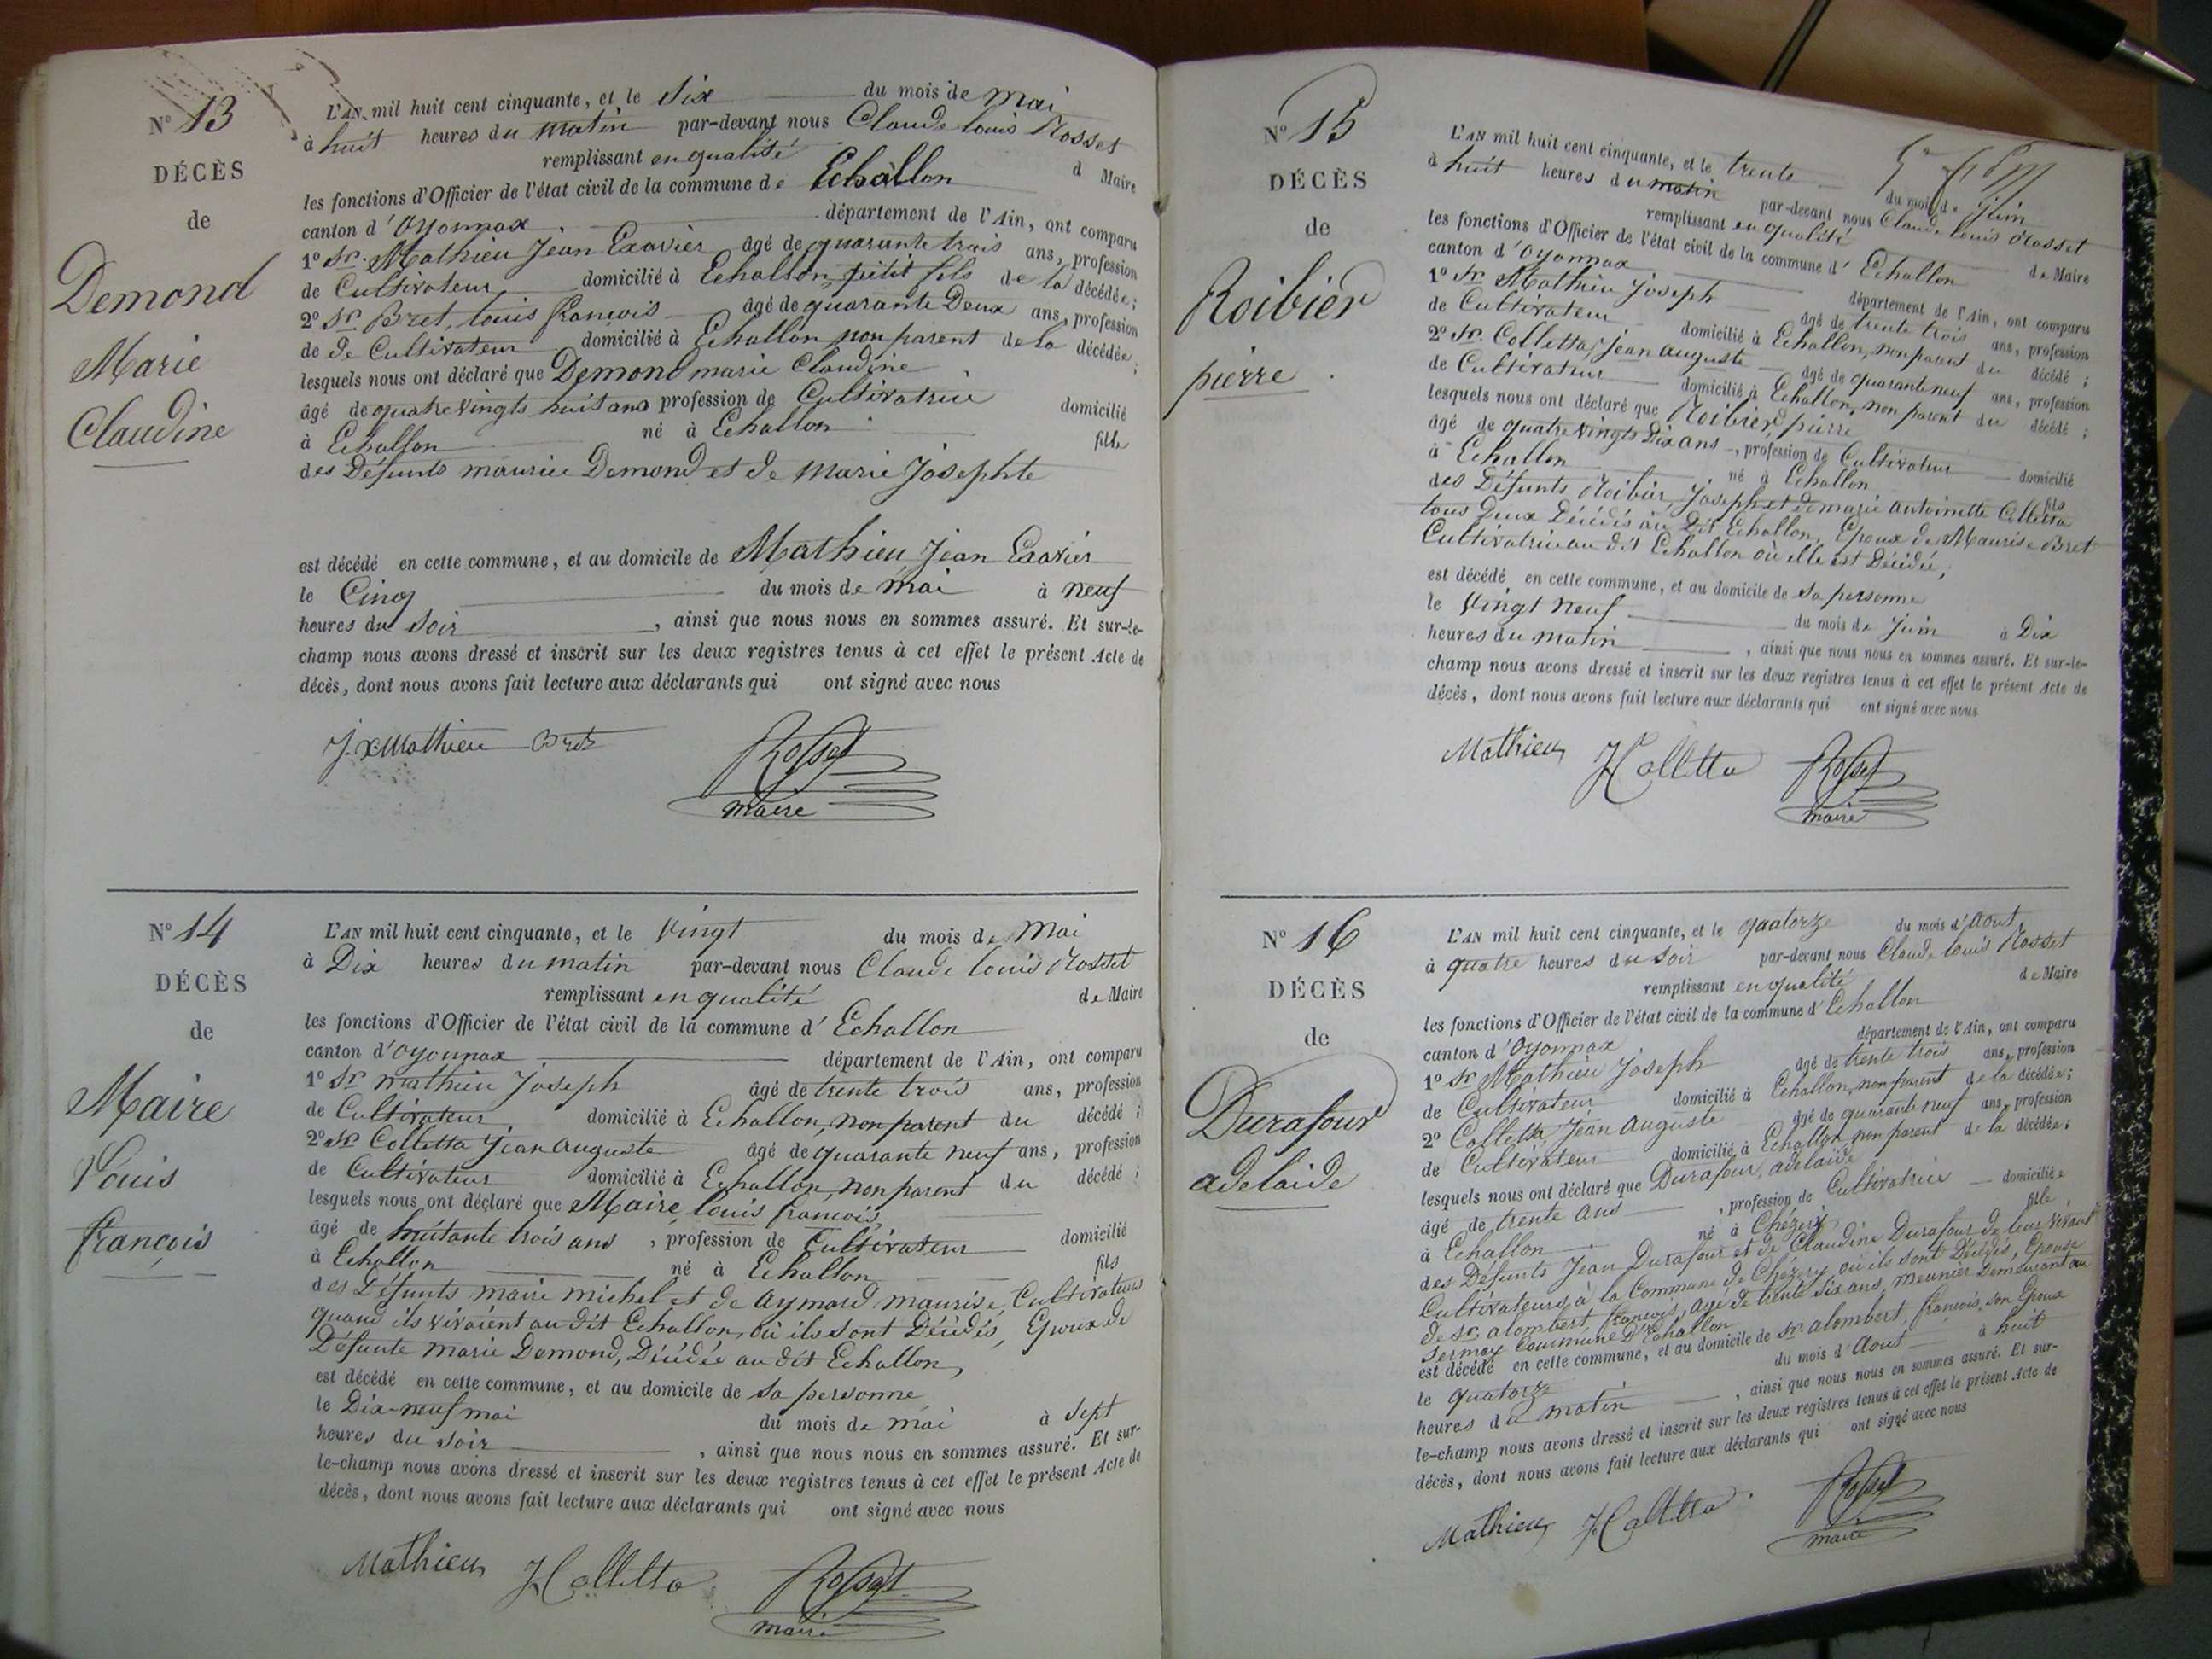 N° 13
DÉCÈS
de
Demond
Marie
Claudine
L'AN mil huit cent cinquante, et le Six du mois de mai
à huit heures du matin par-devant nous Claude louis Rosset
remplissant en qualité d Maire
les fonctions d'Officier de l'état civil de la commune de Echallon
canton d'Oyonnax département de l'Ain, ont comparu
1° Sr. Mathieu Jean Exavier âgé de quarante trois ans, profession
de Cultivateur domicilié à Echallon, petit fils de la décédée;
2° Sr Bret, louis francois âgé de quarante Deux ans, profession
de de Cultivateur domicilié à Echallon non parent de la décédée;
lesquels nous ont déclaré que Demond marie Claudine
âgé de quatre vingts huit ans profession de Cultivatrice domicilié
à Echallon né à Echallon fille
des Défunts maurice Demond et de Marie Josephte
est décédé en cette commune, et au domicile de Mathieu Jean Exavier
le Cinq du mois de mai à neuf
heures du Soir, ainsi que nous nous en sommes assuré. Et sur-le-
champ nous avons dressé et inscrit sur les deux registres tenus à cet effet le présent Acte de
décès, dont nous avons fait lecture aux déclarants qui ont signé avec nous
J. x Mathieu Bret Rosset
maire
N° 14
DÉCÈS
de
Maire
Louis
françois
L'AN mil huit cent cinquante, et le Vingt du mois de Mai
à Dix heures du matin par-devant nous Claude louis Rosset
remplissant en qualité de Maire
les fonctions d'Officier de l'état civil de la commune d'Echallon
canton d'Oyonnax département de l'Ain, ont comparu
1° Sr mathieu Joseph âgé de trente trois ans, profession
de Cultivateur domicilié à Echallon, non parent du décédé;
2° Sr Colletta Jean Auguste âgé de quarante neuf ans, profession
de Cultivateur domicilié à Echallon, non parent du décédé;
lesquels nous ont déclaré que Maire, louis francois
âgé de huitante trois ans, profession de Cultivateur domicilié
à Echallon né à Echallon fils
des Défunts maire michel et de Aymard maurise, Cultivateurs
quand ils vivaient au dit Echallon, où ils sont Décédés, Epoux de
Défunte marie Demond, Décédée au dit Echallon,
est décédé en cette commune, et au domicile de Sa personne
le Dix-neuf mai du mois de mai à Sept
heures du Soir, ainsi que nous nous en sommes assuré. Et sur-
le-champ nous avons dressé et inscrit sur les deux registres tenus à cet effet le présent Acte de
décès, dont nous avons fait lecture aux déclarants qui ont signé avec nous
Mathieu Colletta Rosset
maire
N° 15
DÉCÈS
de
Roibier
pierre
L'AN mil huit cent cinquante, et le trente du mois de Juin
à huit heures du matin par-devant nous Claude louis Rosset
remplissant en qualité de Maire
les fonctions d'Officier de l'état civil de la commune d'Echallon
canton d'Oyonnax département de l'Ain, ont comparu
1° Sr Mathieu Joseph âgé de trente trois ans, profession
de Cultivateur domicilié à Echallon, non parent du décédé;
2° Sr. Colletta, Jean Auguste âgé de quarante neuf ans, profession
de Cultivateur domicilié à Echallon, non parent du décédé;
lesquels nous ont déclaré que Roibier pierre
âgé de quatre vingts Dix ans, profession de Cultivateur domicilié
à Echallon né à Echallon fils
des Défunts Roibier Joseph et de marie antoinette Colletta
tous Deux Décédés au Dit Echallon, Epoux de Maurise Bret
Cultivatrice au dit Echallon où elle est Décédée,
est décédé en cette commune, et au domicile de Sa personne
le Vingt neuf du mois de Juin à Dix
heures du matin, ainsi que nous nous en sommes assuré. Et sur-le-
champ nous avons dressé et inscrit sur les deux registres tenus à cet effet le présent Acte de
décès, dont nous avons fait lecture aux déclarants qui ont signé avec nous
Mathieu Colletta Rosset
maire
N° 16
DÉCÈS
de
Durafour
adelaide
L'AN mil huit cent cinquante, et le quatorze du mois d'Aout
à quatre heures du Soir par-devant nous Claude louis Rosset
remplissant en qualité de Maire
les fonctions d'Officier de l'état civil de la commune d'Echallon
canton d'Oyonnax département de l'Ain, ont comparu
1° Sr Mathieu Joseph âgé de trente trois ans, profession
de Cultivateur domicilié à Echallon, non parent de la décédée;
2° Colletta, Jean Auguste âgé de quarante neuf ans, profession
de Cultivateur domicilié à Echallon non parent de la décédée;
lesquels nous ont déclaré que Durafour, adelaïde
âgé de trente ans, profession de Cultivatrice domiciliée
à Echallon né à Chézery fille
des Défunts Jean Durafour et de Claudine Durafour de leur vivant
Cultivateurs, à la Commune de Chézery où ils sont Décédés, Epouse
de Sr. alombert, françois, agé de trente Six ans, meunier Demeurant au
Sermoy Commune D'Echallon
est décédé en cette commune, et au domicile de Sr. alombert, françois, son Epoux
le quatorze du mois d'Aout à huit
heures du matin, ainsi que nous nous en sommes assuré. Et sur-
le-champ nous avons dressé et inscrit sur les deux registres tenus à cet effet le présent Acte de
décès, dont nous avons fait lecture aux déclarants qui ont signé avec nous
Mathieu Colletta Rosset
maire